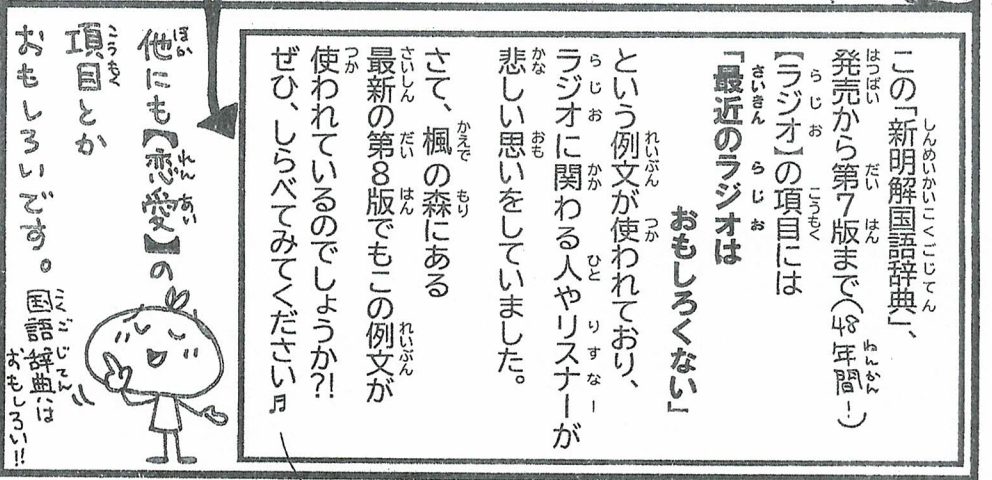 この「新明解国語辞典」、
発売から第7版まで(48年間!)
【ラジオ】の項目には
「最近のラジオは
おもしろくない」
という例文が使われており、
ラジオに関わる人やリスナーが
悲しい思いをしていました。
さて、楓の森にある
最新の第8版でもこの例文が
使われているのでしょうか?!
ぜひ、しらべてみてください♬
他にも【恋愛】の
項目とか
おもしろいです。
国語辞典は
おもしろい!!